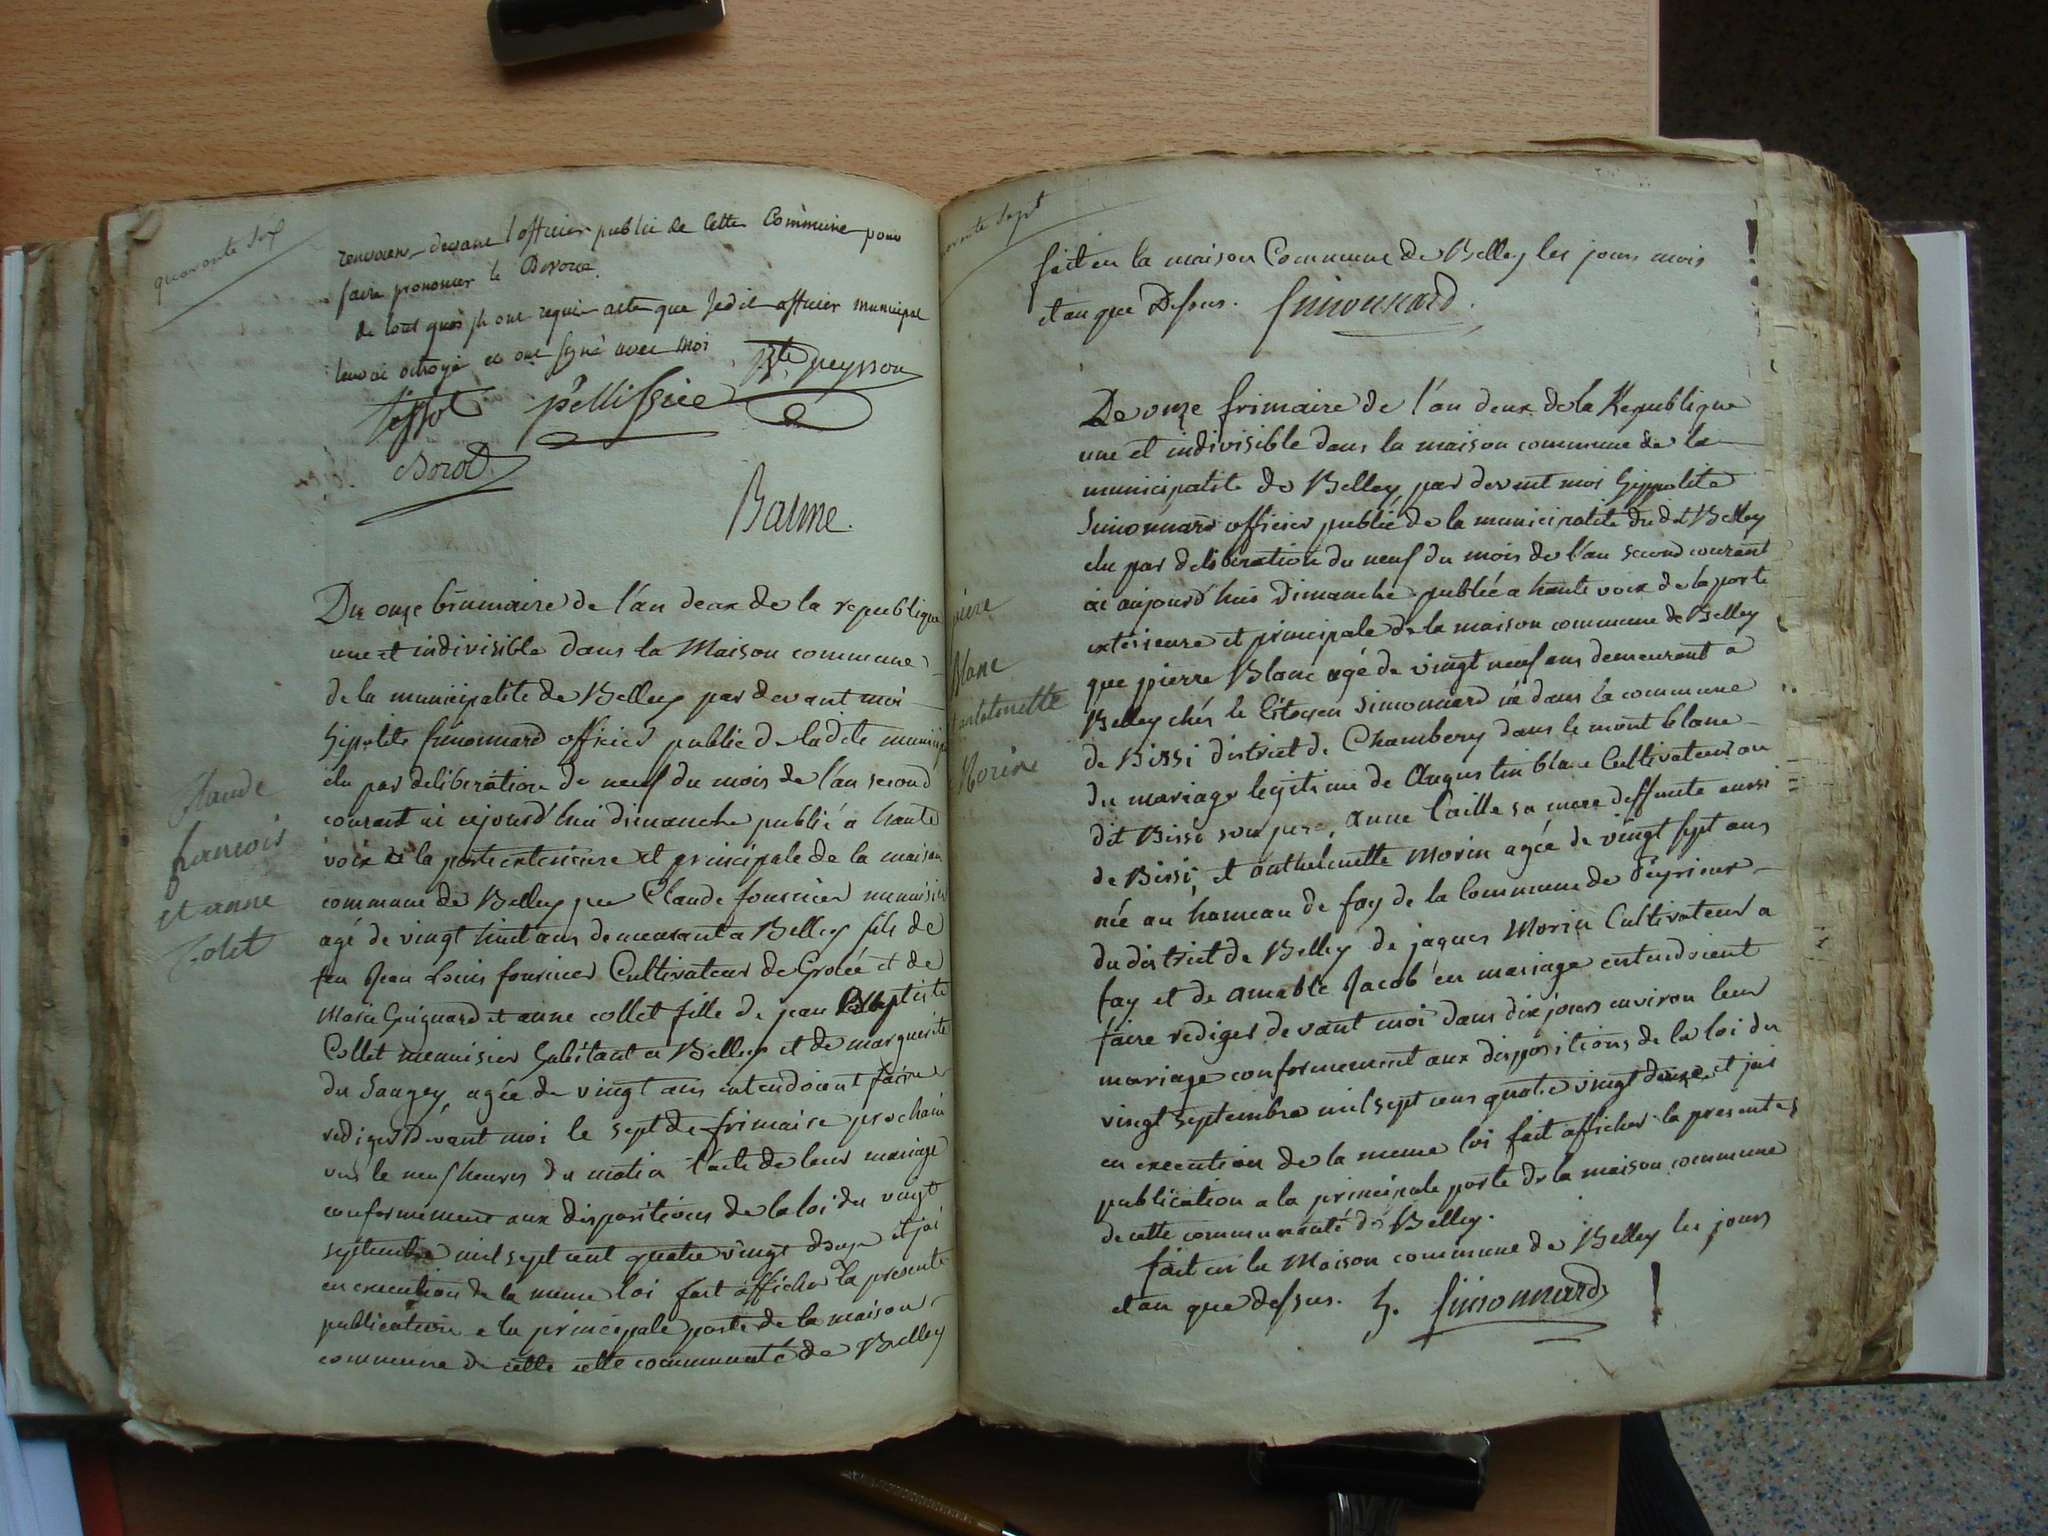 quarante six
renvoier devant l'officier public de cette Commune pour
faire prononcer le Divorce.
de tout quoi ils ont requis acte que Jedit officier municipal
leur ai octroyé et ont signé avec moi
pellissier
Bte peysson
Borot
Baume.
Du onze brumaire de l'an deux de la republique
une et indivisible dans la Maison commune
de la municipalité de Belley par devant moi
hippolite Simonnard officier public de ladite municip
elu par deliberation de neuf du mois de l'an second
courant ai aujourd'hui dimanche publié à haute
voix de la porte exterieure et principale de la maison
commune de Belley que Claude fournier menuisier
agé de vingt huit ans demeurant a Belley fils de
feu Jean Louis fournier Cultivateur de Groleé et de
Marie Guignard et anne collet fille de jean Baptiste
Collet menuisier habitant a Belley et de marguerite
du Saugey, agée de vingt ans entendoient faire
rediger devant moi le sept de frimaire prochain
vers le neuf heures du matin l'acte de leur mariage
conformement aux dispositions de la loi du vingt
septembre mil sept cent quatre vingt douze et j'ai
en execution de la meme loi fait afficher la presente
publication a la principale porte de la maison
commune de cette cette communauté de Belley
Claude
francois
et anne
Colet
quarante sept
fait en la maison Commune de Belley les jours mois
et an que Dessus. Simonnard.
De onze frimaire de l'an deux de la Republique
une et indivisible dans la maison commune de la
municipalité de Belley par devant moi hippolite
Simonnard officier public de la municipalité du dit Belley
elu par deliberation du neuf du mois de l'an second courant
ai aujourd'hui Dimanche publié a haute voix de la porte
exterieure et principale de la maison commune de Belley
que pierre Blanc agé de vingt neuf ans demeurant a
Belley chés le Citoyen Simonnard né dans la commune
de Bissi district de Chambery dans le mont blanc
du mariage legitime de Augustin blanc Cultivateur au
dit Bissi son pere, anne Caille sa mere deffunte aussi
de Bissi, et anthelmette Morin agée de vingt sept ans
née au hameau de fay de la Commune de Peyrieux
du district de Belley de jaques Morin Cultivateur a
fay et de amable Jacob en mariage entendoient
faire rediger devant moi dans dix jours environ leur
mariage conformement aux dispositions de la loi du
vingt septembre mil sept cens quatre vingt douze et j'ai
en execution de la meme loi fait afficher la presentes
publication a la principale porte de la maison commune
de cette communauté de Belley.
fait en la Maison commune de Belley les jours
et an que dessus. h. Simonnard
pierre
Blanc
antelmette
Morin